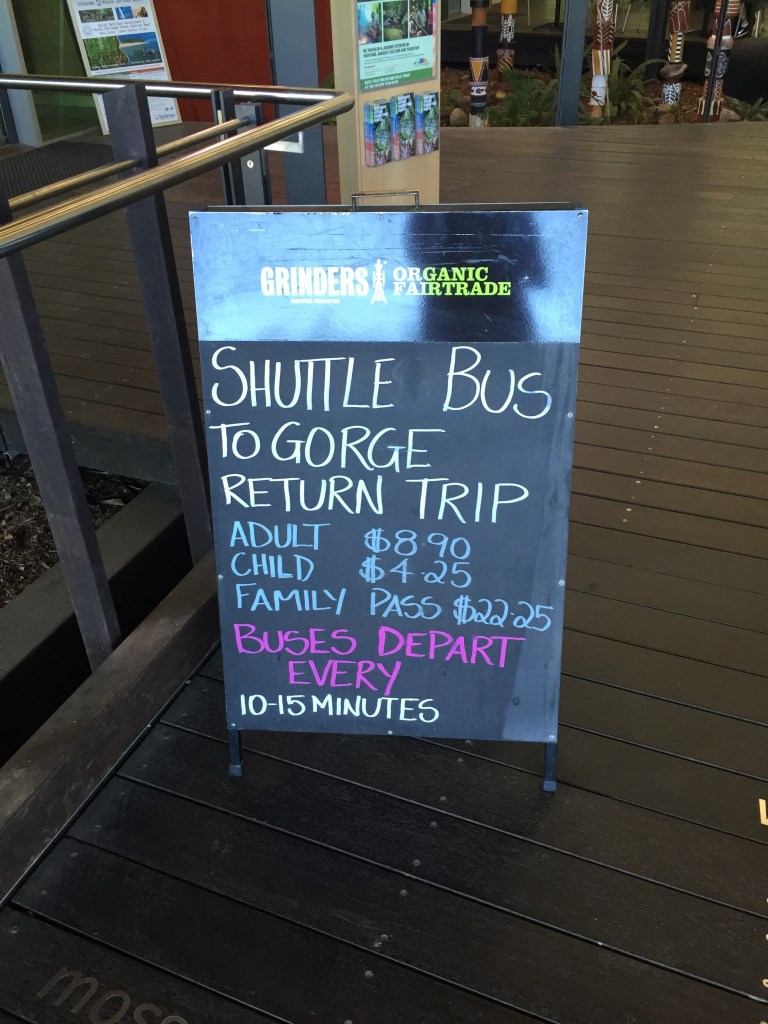 GRINDERS ORGANIC
FAIRTRADE
SHUTTLE BUS
TO GORGE
RETURN TRIP
ADULT $8.90
CHILD $4.25
FAMILY PASS $22.25
BUSES DEPART
EVERY
10-15 MINUTES
moss